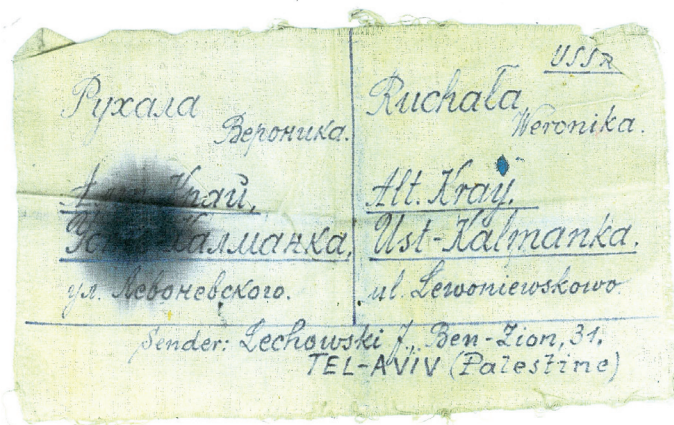 Рухала
Вероника.
Край,
Калманка,
ул. Левоневского.
USSR
Ruchała
Weronika.
Alt. Kray,
Ust-Kalmanka.
ul. Lewoniewskowo
Sender: Lechowski J., Ben-Zion, 31.
TEL-AVIV (Palestine)